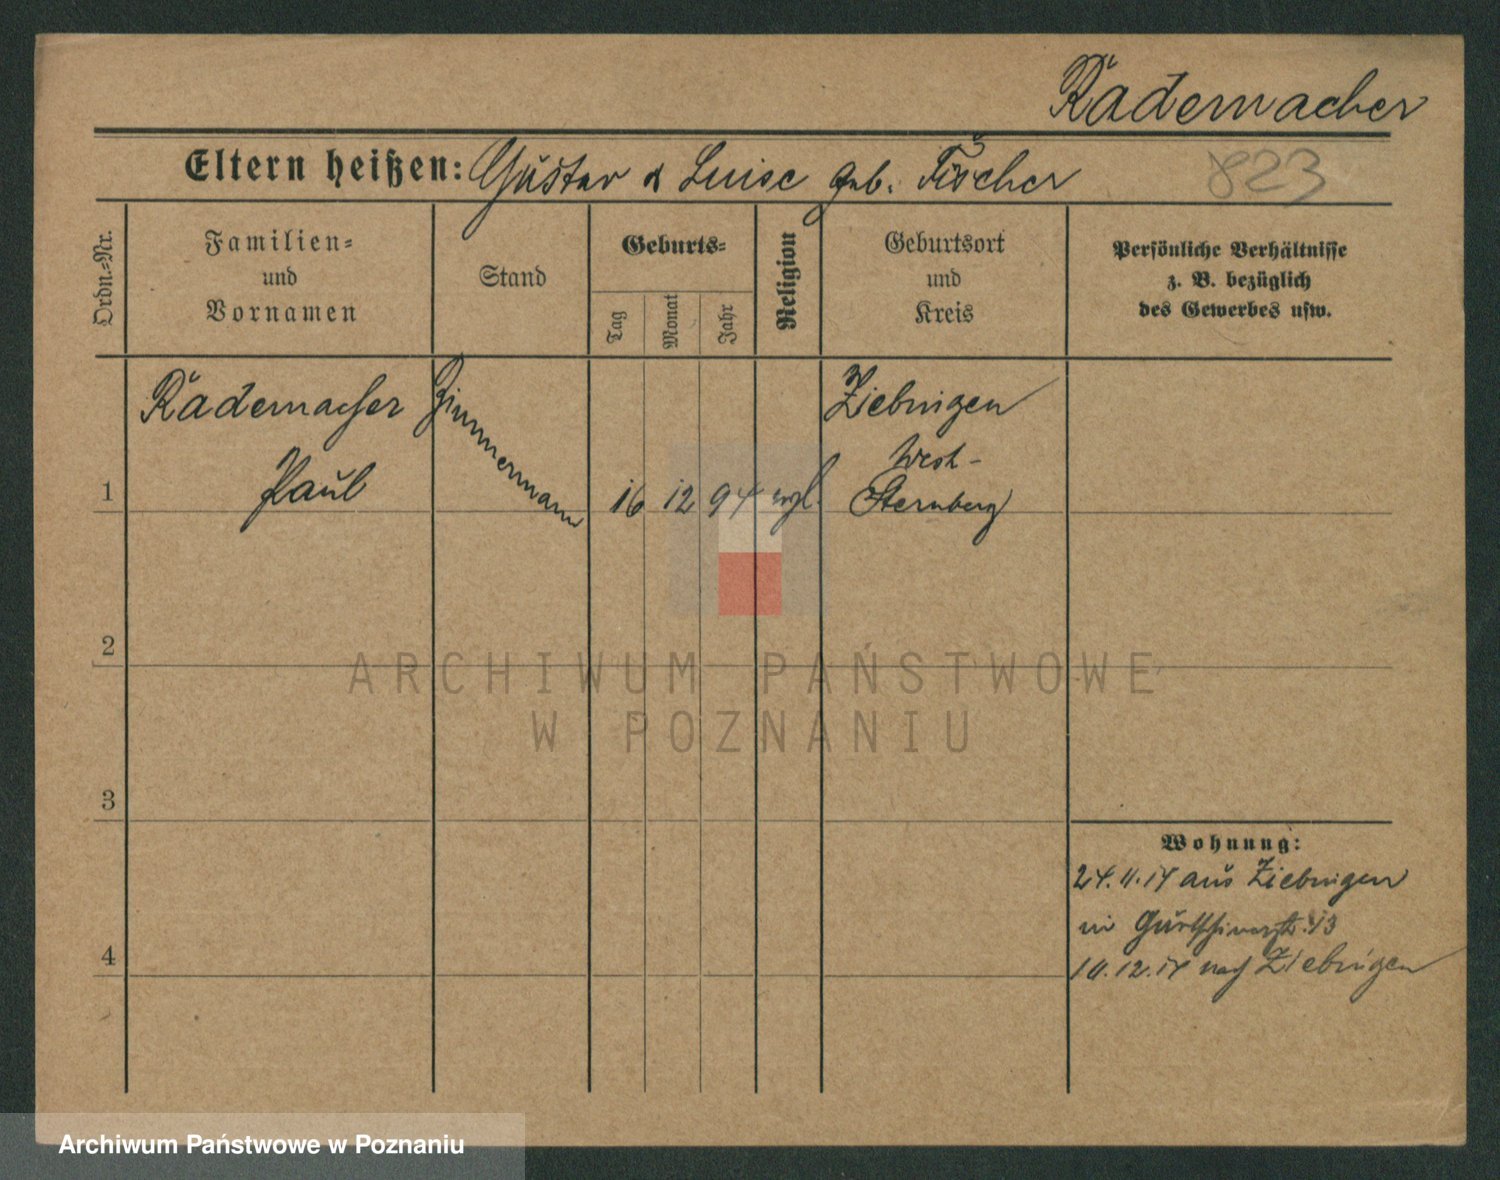 Rademacher
Eltern heißen: Gustav & Luise geb. Fischer
823
Ordn.=Nr.
Familien=
und
Vornamen
Stand
Geburts=
Tag
Monat
Jahr
Religion
Geburtsort
und
Kreis
Persönliche Verhältnisse
z. B. bezüglich
des Gewerbes usw.
Rademacher
Paul
Zimmermann
1
16 12 94 evgl.
Ziebingen
West-
Sternberg
2
ARCHIWUM PAŃSTWOWE
W POZNANIU
3
Wohnung:
24.11.14 aus Ziebingen
in
13
4
10.12.14 nach Ziebingen
Archiwum Państwowe w Poznaniu